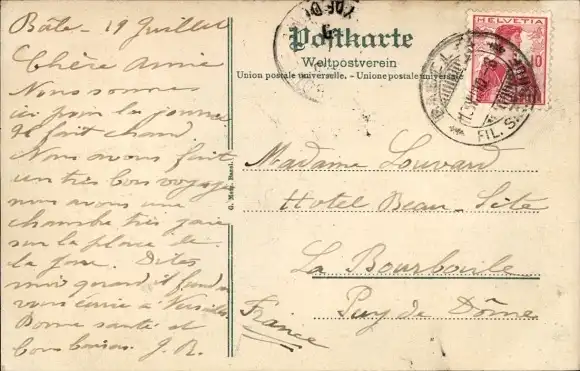 Bâle - 19 Juillet
Chère Amie
Nous sommes
ici pour la journée
Il fait chaud
Nous avons fait
un très bon voyage
nous avons une
chambre très gaie
sur la place de
la gare. Dites
moi quand il faudra
vous écrire à Versailles
Bonne santé et
bons baisers. J. R.
Postkarte
Weltpostverein
Union postale universelle. - Unione postale universale
G. Metz, Basel.
HELVETIA
10
BASEL
FIL. S
Madame Louvard
Hotel Beau-Site
La Bourboule
Puy de Dôme
France